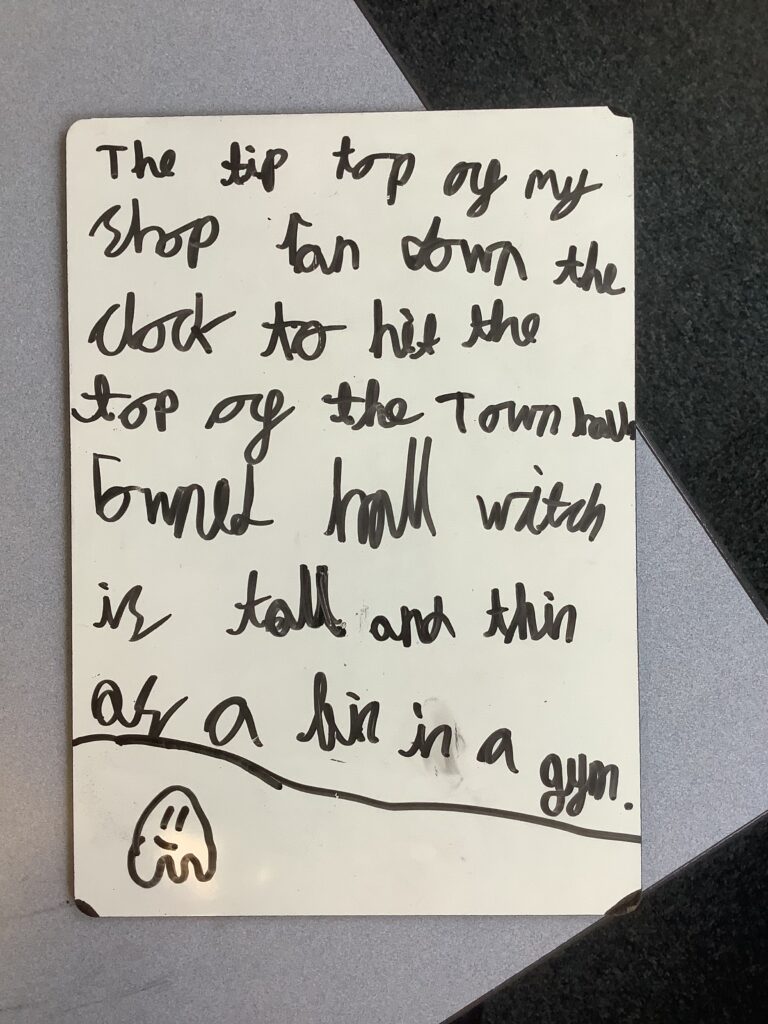 The tip top of my
shop ran down the
clock to hit the
top of the Town hall
hall witch
is tall and thin
as a bin in a gym.